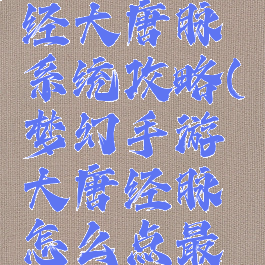 经大唐脉
系统攻略(
梦幻手游
大唐经脉
怎么点最